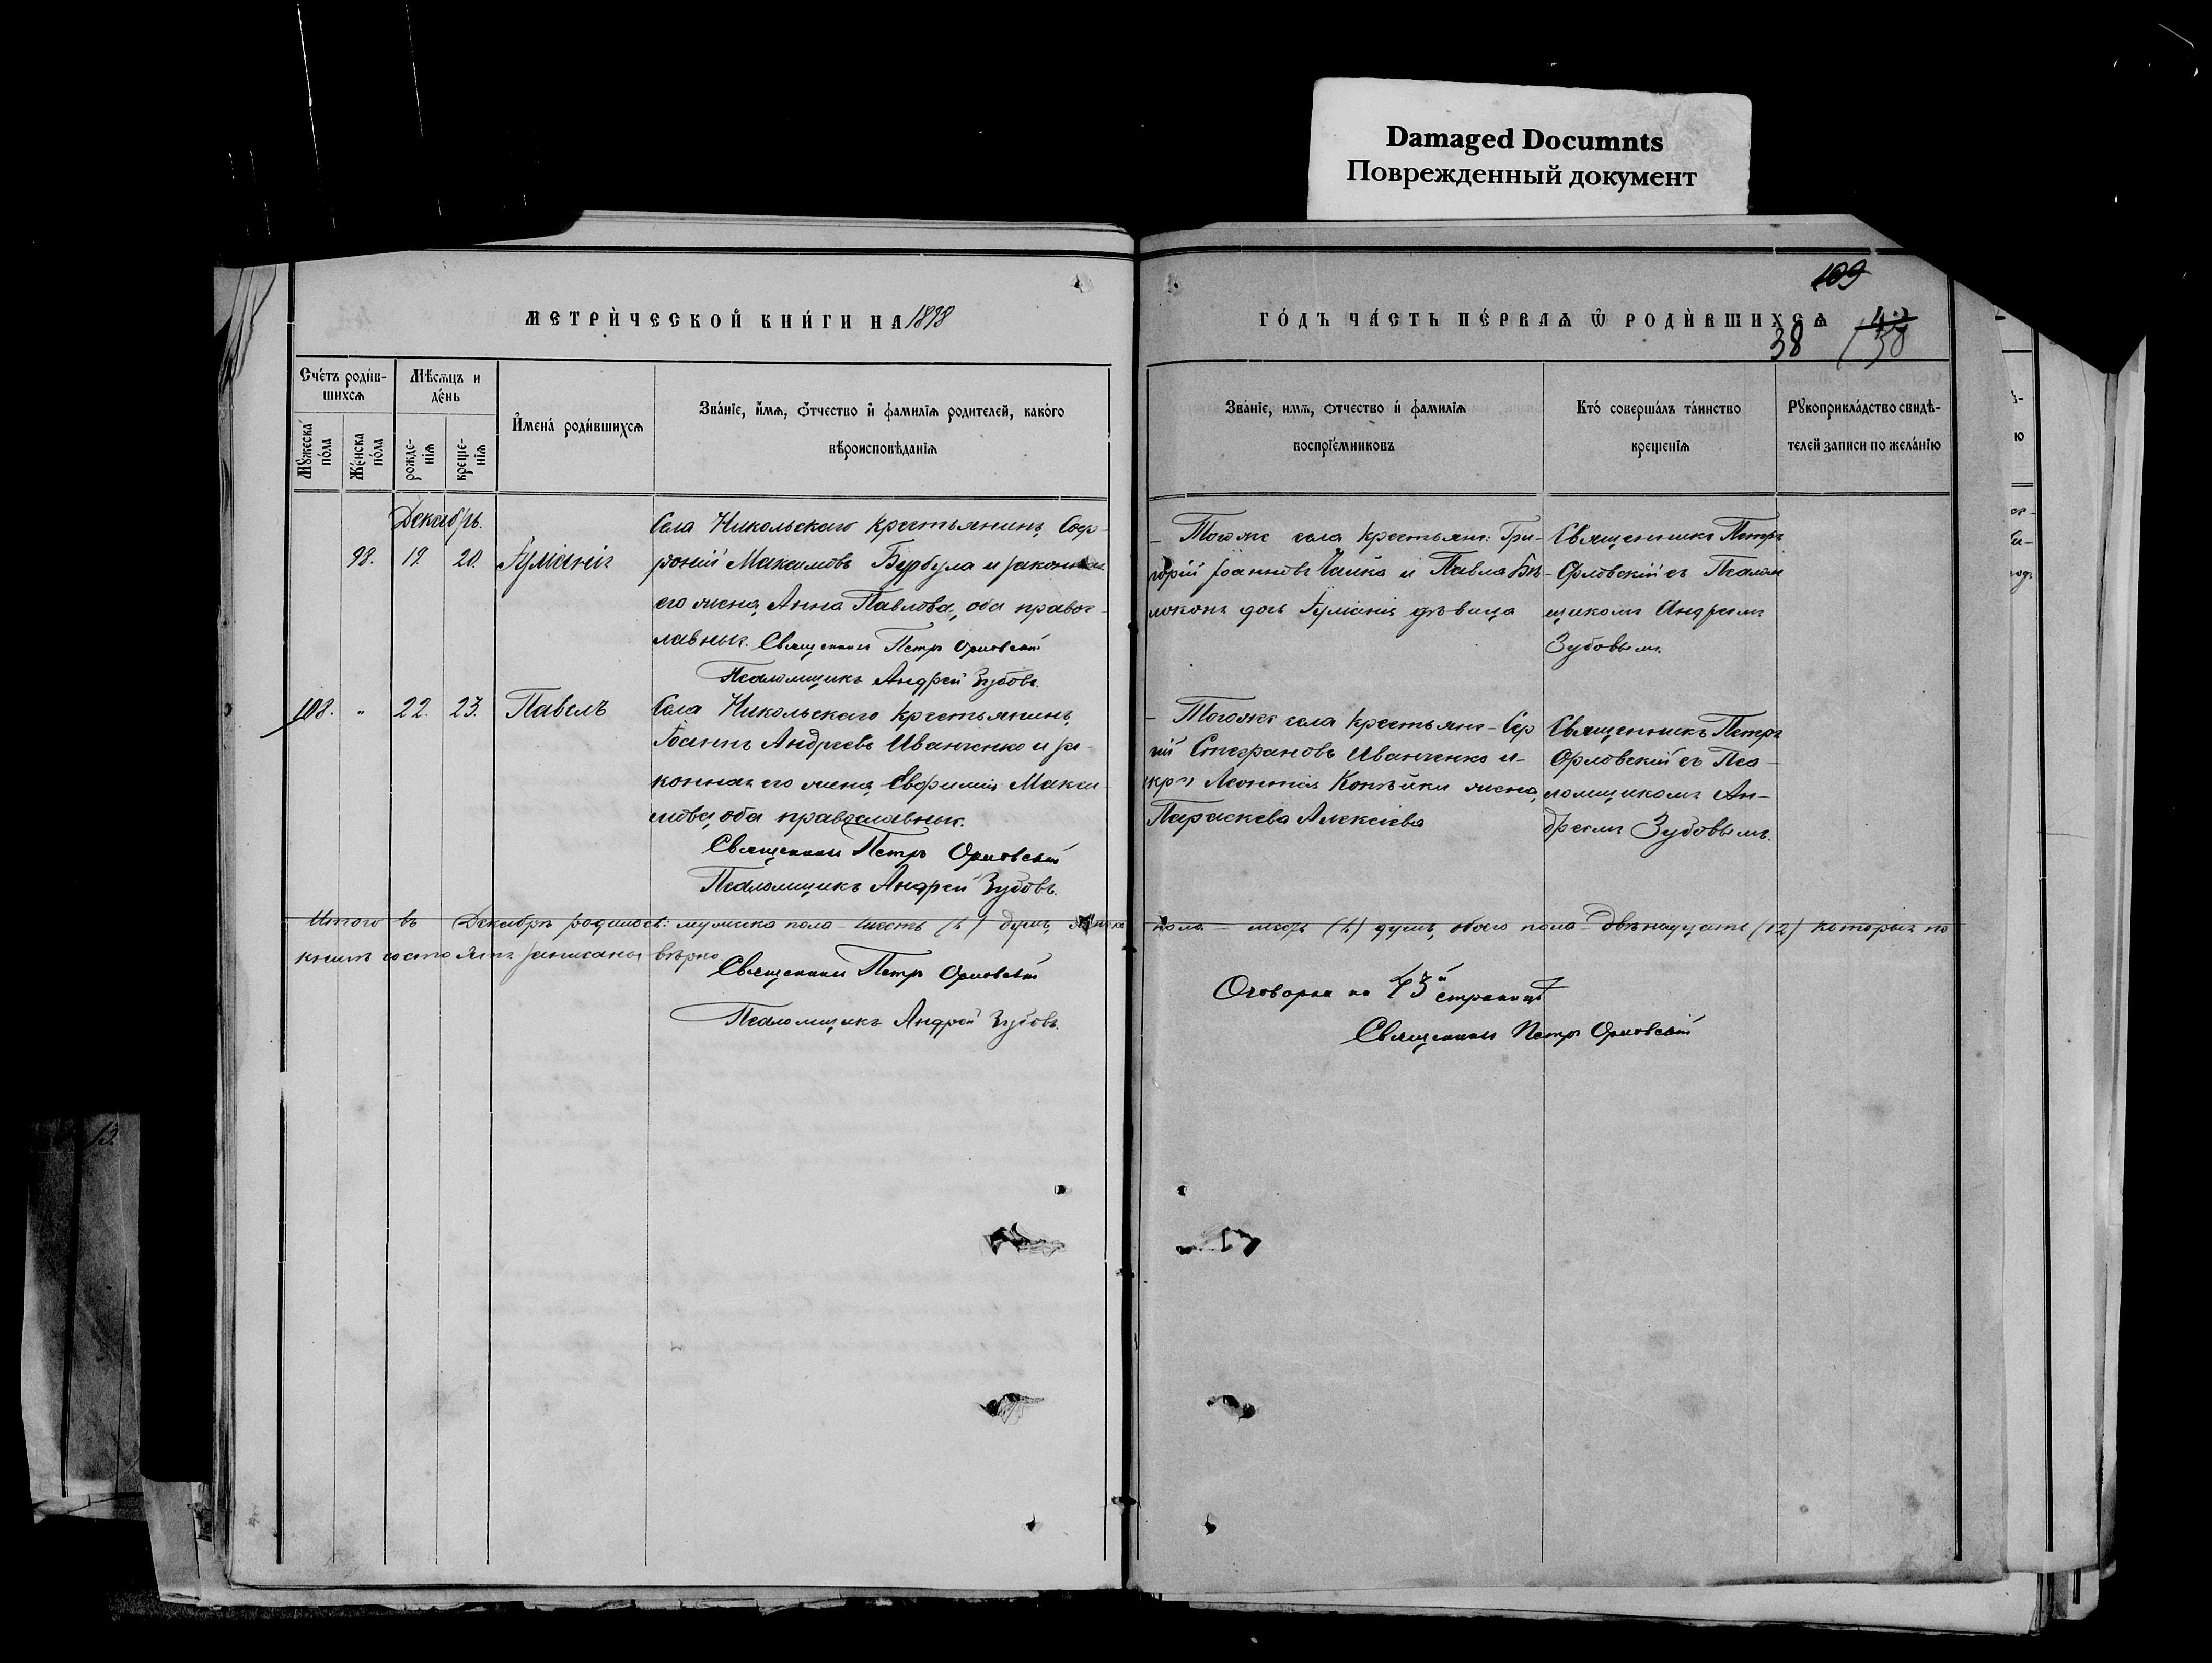 Damaged Documnts
Поврежденный документ
МЕТРИЧЕСКОЙ КНИГИ НА 1898
ГОДЪ ЧАСТЬ ПЕРВАЯ Ѡ РОДИВШИХСЯ
109
38
Счетъ родив-
шихся
Мѣсяцъ и
день
Мужеска
пола
Женска
пола
рожде-
нія
креще-
нія
Имена родившихся
Званіе, имя, отчество и фамилія родителей, какого
вѣроисповѣданія
Званіе, имя, отчество и фамилія
воспріемниковъ
Кто совершалъ таинство
крещенія
Рукоприкладство свидѣ-
телей записи по желанію
Декабрь.
98. 19. 20. Іуліанія
Села Никольскаго крестьянинъ Соф-
роній Максимовъ Бурбула и законная
его жена Анна Павлова, оба правос-
лавные. Священникъ Петръ Орловскій
Псаломщикъ Андрей Зубовъ.
Тогоже села крестьяне: Гри-
горій Іоанновъ Чайка и Павла Бѣ-
локонь дочь Іуліанія дѣвица
Священникъ Петръ
Орловскій съ Псалом
щикомъ Андреемъ
Зубовымъ.
108. " 22. 23. Павелъ
Села Никольскаго крестьянинъ
Іоаннъ Андреевъ Иванченко и за-
конная его жена Евфимія Макси
мова, оба православные.
Священникъ Петръ Орловскій
Псаломщикъ Андрей Зубовъ.
Тогоже села крестьяне Сер
гій Стефановъ Иванченко и
кр. Леонтія Копѣйки жена
Параскева Алексіева
Священникъ Петръ
Орловскій съ Пса-
ломщикомъ Ан-
дреемъ Зубовымъ.
Итого въ Декабрѣ родилось: мужеска пола шесть (6) душъ, женска пола шесть (6) душъ, обоего пола двѣнадцать (12) которыя по
книгѣ записаны вѣрно
Священникъ Петръ Орловскій
Псаломщикъ Андрей Зубовъ.
Оговорка на 43й страницѣ
Священникъ Петръ Орловскій
13.